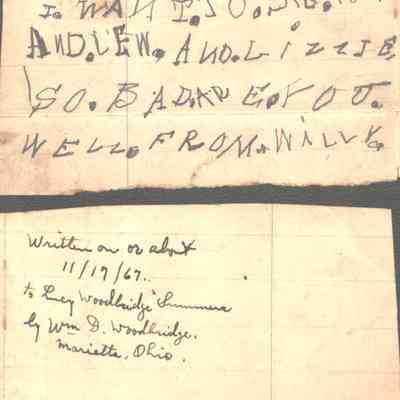 I. WANT.
AND.LEW. AND.LIZZIE
SO. BAD.
WELL. FROM. WILLY.
Written on or about
11/17/67.
to Lucy Woodbridge Summers
by Wm D. Woodbridge.
Marietta, Ohio.